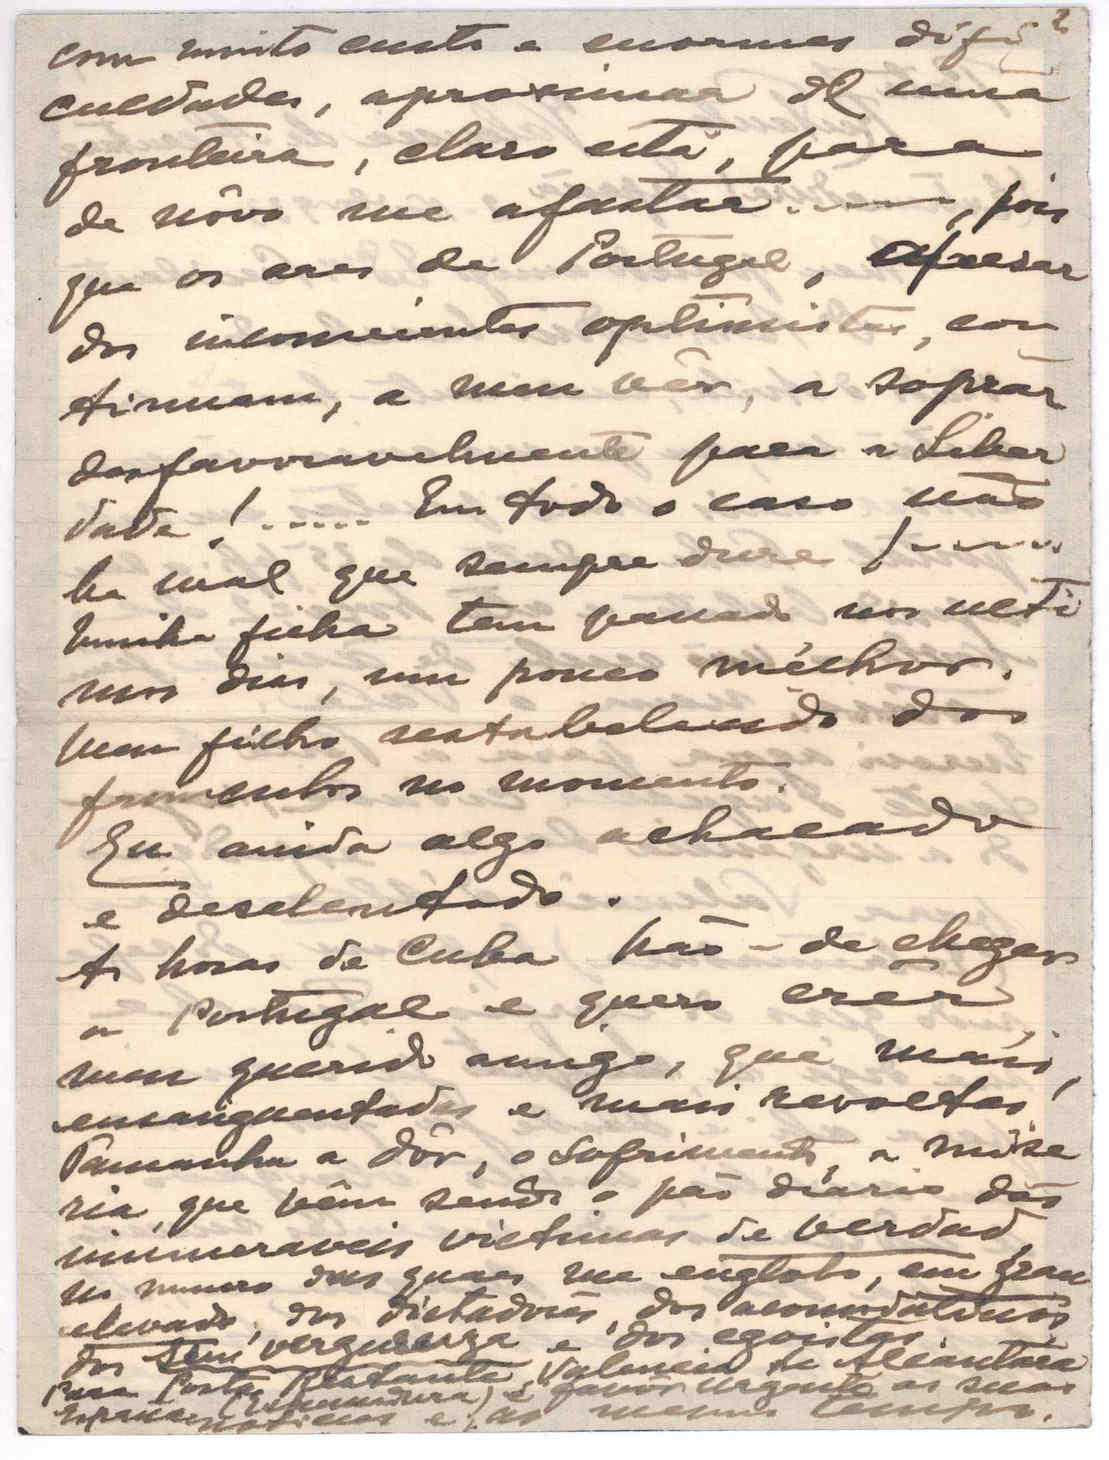 2
com muito custo e enormes difi
culdades, aproximar de uma
fronteira, claro está, para
de nôvo me afastar ......, pois
que os ares de Portugal, apesar
dos inconscientes optimistas, con
tinuam, a meu vêr, a soprár
desfavoravelmente para a Liber
dade! ..... Em todo o caso não
ha mal que sempre dure! .....
Minha filha tem passado nos ulti
mos dias, um pouco mélhor.
Meu filho restabelecido dos
frunculos no momento.
Eu ainda algo achacado
e desalentado.
As horas de Cuba hão-de chegar
a Portugal e quero crêr
meu querido amigo, que mais
ensanguentadas e mais revoltas!
Tamanha a dôr, o sofrimento, a misé
ria, que vêm sendo o pão diario das
inumeraveis victimas de verdad,
no numero das quaes me englobo, em grau
elevado, dos dictadores, dos acomodaticios,
dos sem vergüenza e dos egoistas.
Para Posta Restante, Valencia de Alcantára
España (Estremadura) é favôr urgente as suas
noticias e, ao mesmo tempo.